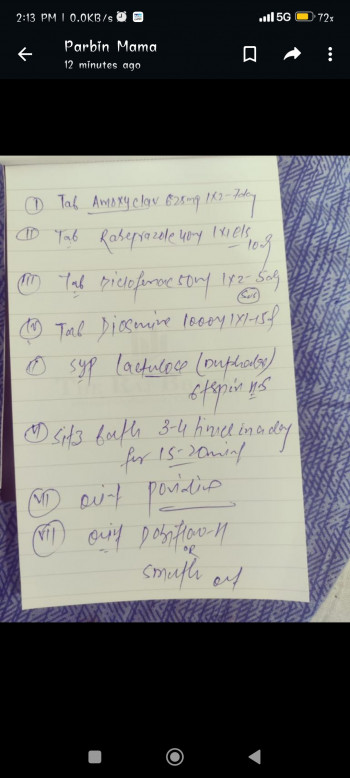 2:13 PM | 0.0KB/s
5G 72%
Parbin Mama
12 minutes ago
I Tab Amoxyclav 625mg 1x2-7day
II Tab Rabeprazole 40mg 1x1
III Tab Diclofenac 50mg 1x2-5d
IV Tab Diosmine 1000mg 1x1-15d
V Syp Lactulose (Duphalac)
6tspin HS
VI Sitz bath 3-4 time in a day
for 15-20 min
VII oint Povidine
VIII oint
or
Smuth